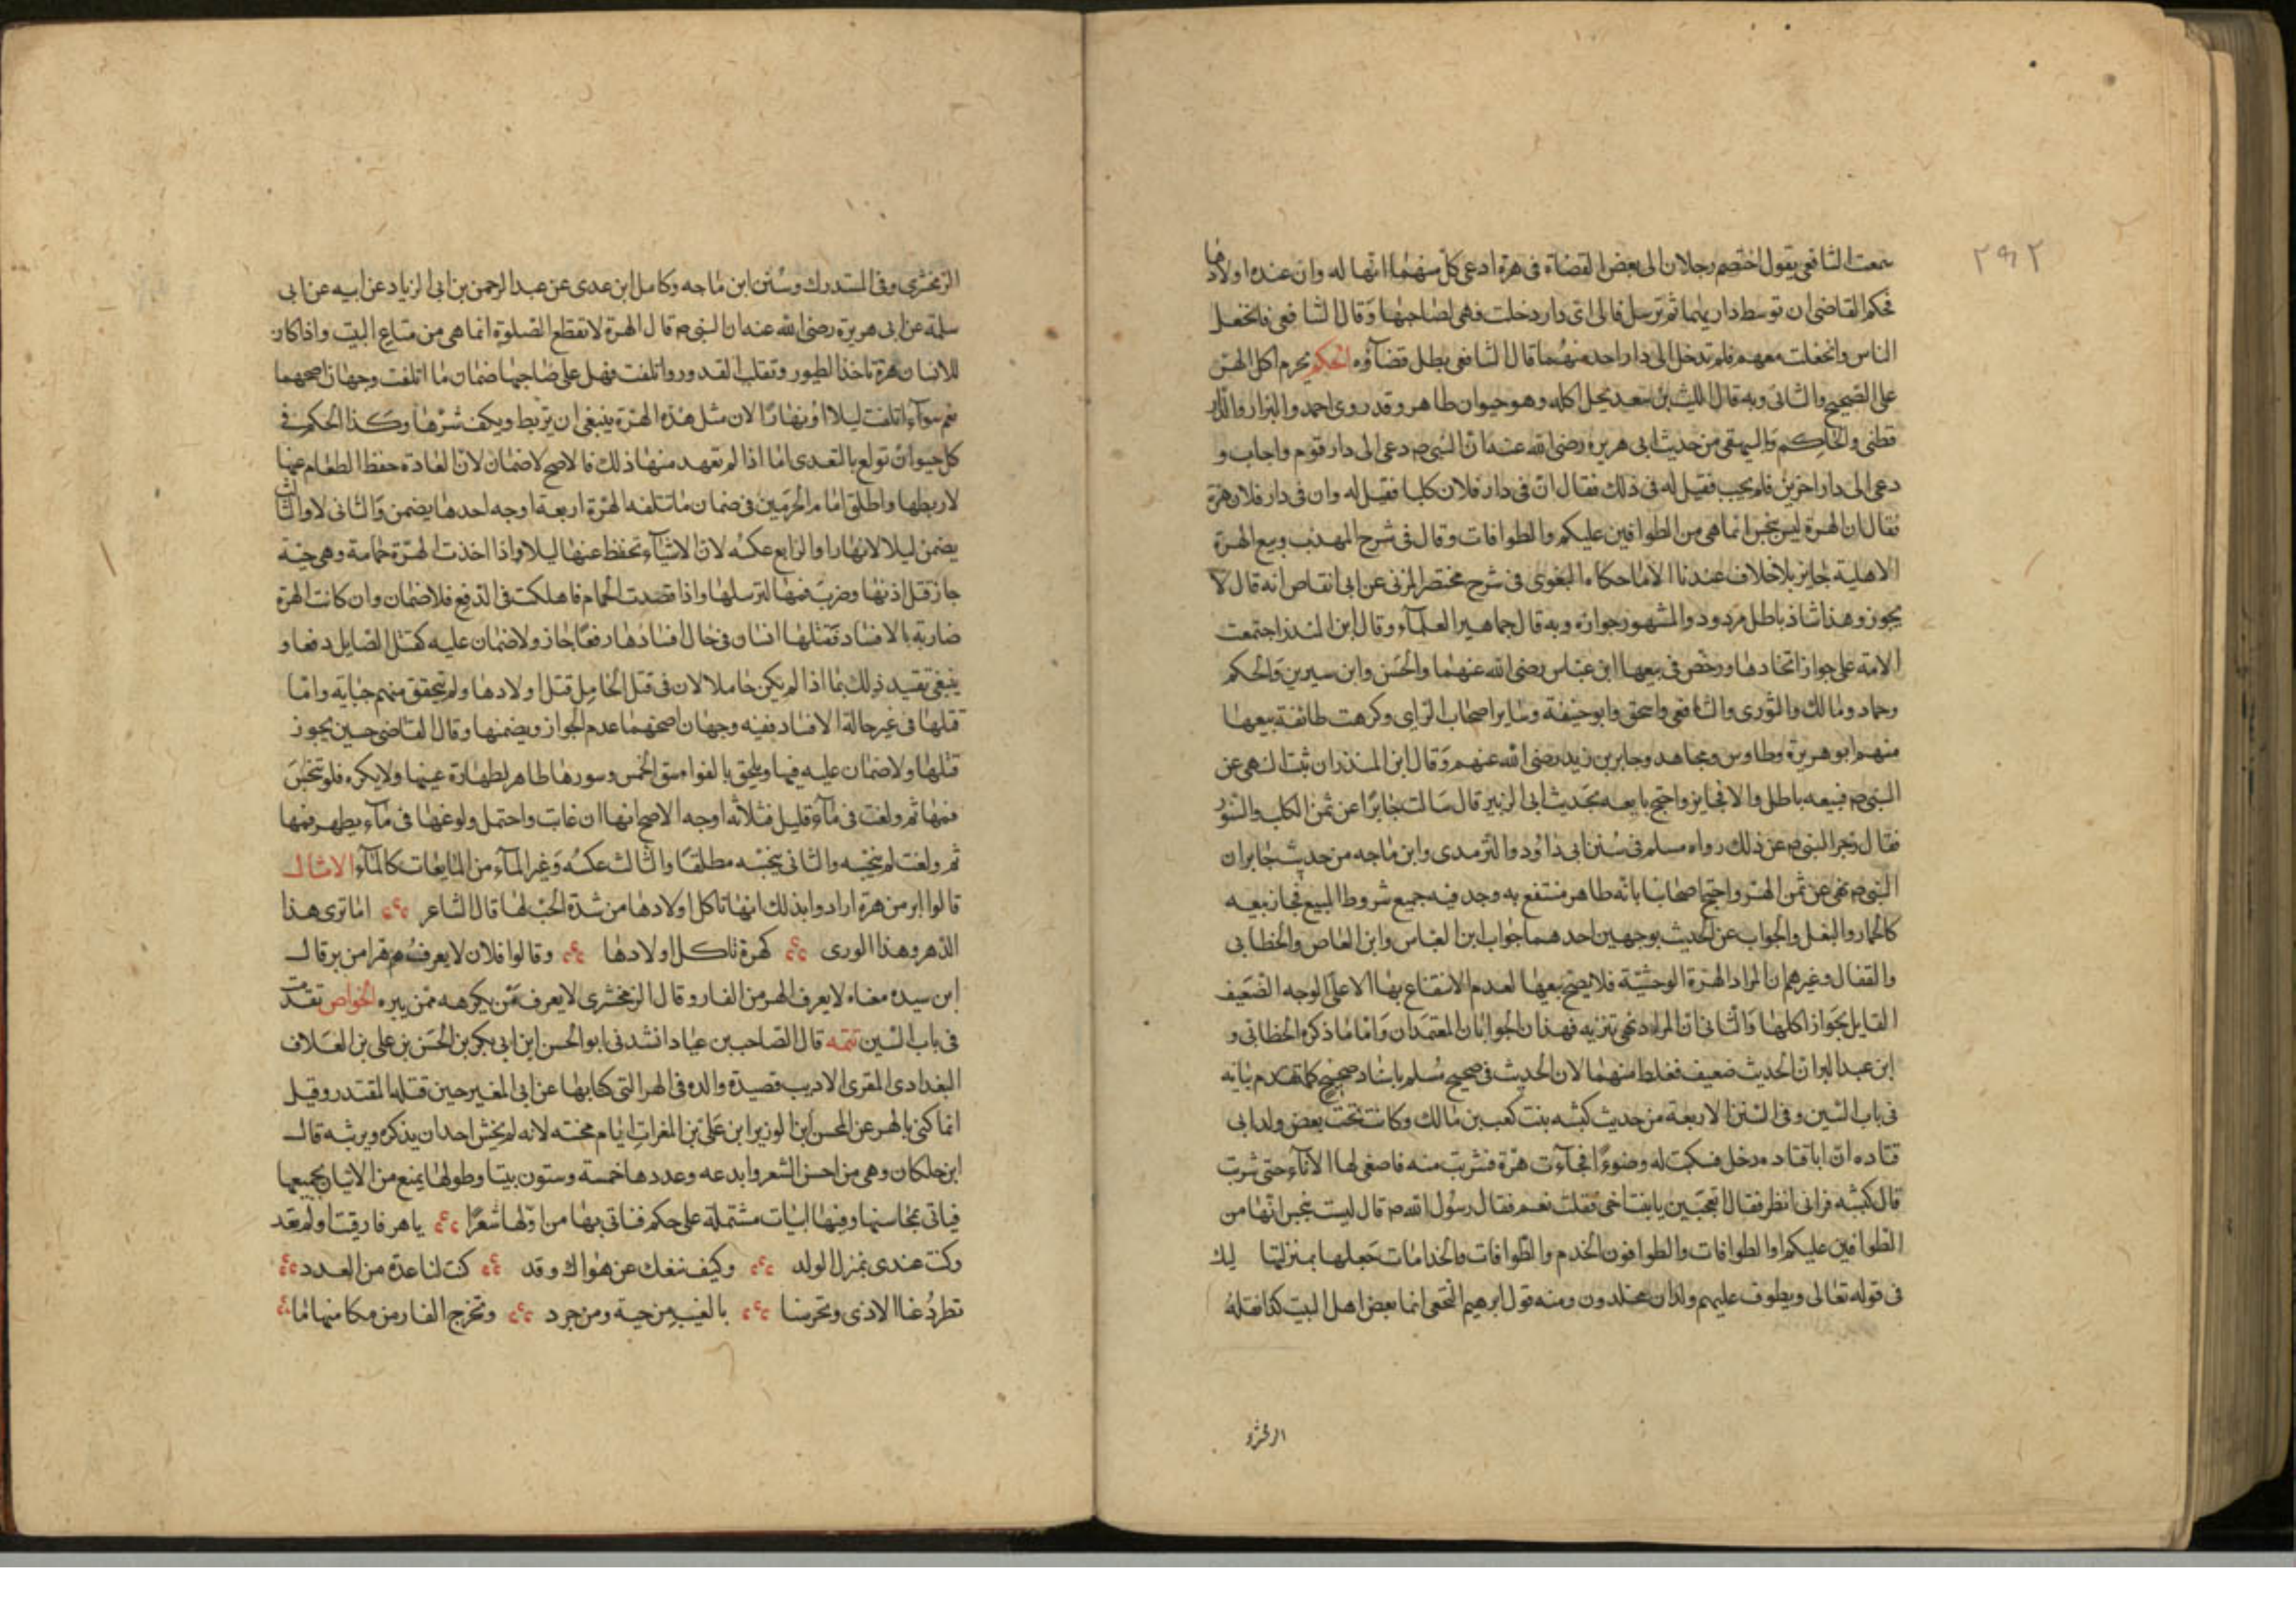 ٢٩٢
سمعت الشافعي يقول اختصم رجلان الى بعض القضاة في هرة ادعى كل منهما انها له وان عنده اولادها
فحكم القاضي ان توسط دار بينهما ثم ترسل فالى اى دار دخلت فهي لصاحبها وقال الشافعي فانجفل
الناس وانجفلت معهم فلم تدخل الى دار واحد منهما قال الشافعي بطل قضاؤه الحكم يحرم اكل الهر
على الصحيح والثاني وبه قال الليث بن سعد يحل اكله وهو حيوان طاهر وقد روى احمد والبزار والدار
قطني والحاكم والبيهقي من حديث ابى هريرة رضى الله عنه ان النبى م دعى الى دار قوم واجاب و
دعى الى دار اخرين فلم يجب فقيل له في ذلك فقال ان في دار فلان كلبا فقيل له وان في دار فلان هرة
فقال ان الهرة ليس بنجس انما هي من الطوافين عليكم والطوافات وقال في شرح المهذب وبيع الهرة
الاهلية جايز بلا خلاف عندنا الا ما حكاه البغوى في شرح مختصر المزنى عن ابى القاص انه قال لا
يجوز وهذا شاذ باطل مردود والمشهور جوازه وبه قال جماهير العلماء وقال ابن المنذر اجتمعت
الامة على جواز اتخاذها ورخص في بيعها ابن عباس رضى الله عنهما والحسن وابن سيرين والحكم
وحماد ومالك والثورى والشافعي واسحق وابو حنيفة وساير اصحاب الراى وكرهت طائفة بيعها
منهم ابو هريرة وطاوس ومجاهد وجابر بن زيد رضى الله عنهم وقال ابن المنذر ان ثبت النهي عن
النبى م فبيعه باطل والا فجايز واحتج مانعه بحديث ابى الزبير قال سالت جابرا عن ثمن الكلب والسنور
فقال زجر النبى م عن ذلك رواه مسلم في سنن ابى داود والترمذى وابن ماجه من حديث جابر ان
النبى م نهى عن ثمن الهر واحتج اصحابنا بانه طاهر منتفع به وجد فيه جميع شروط المبيع فجاز بيعه
كالحمار والبغل والجواب عن الحديث بوجهين احدهما جواب ابن العباس وابن القاص والخطابى
والقفال وغيرهم ان المراد الهرة الوحشية فلا يصح بيعها لعدم الانتفاع بها الا على الوجه الضعيف
القايل بجواز اكلها والثاني ان المراد نهى تنزيه فهذان الجوابان المعتمدان واما ما ذكره الخطابى و
ابن عبد البر ان الحديث ضعيف فغلط منهما لان الحديث في صحيح مسلم باسناد صحيح كما تقدم بيانه
في باب السين وفي السنن الاربعة من حديث كبشه بنت كعب بن مالك وكانت تحت بعض ولد ابى
قتاده ان ابا قتاده دخل فسكبت له وضوءا فجاءت هرة فشربت منه فاصغى لها الاناء حتى شربت
قال كبشه فرانى انظر فقال اتعجبين يا ابنة اخى فقلت نعم فقال رسول الله م قال ليست بنجس انها من
الطوافين عليكم او الطوافات والطوافون الخدم والطوافات والخدامات جعلها بمنزلتها
في قوله تعالى ويطوف عليهم ولدان مخلدون ومنه قول ابرهيم النخعى انما بعض اهل البيت كذا نقله
الزمخشرى وفي المستدرك وسنن ابن ماجه وكامل ابن عدى عن عبد الرحمن بن ابى الزياد عن ابيه عن ابى
سلمة عن ابى هريرة رضى الله عنه ان النبى م قال الهرة لا تقطع الصلوة انما هي من متاع البيت واذا كان
للانسان هرة تاخذ الطيور وتقلب القدور واتلفت فهل على صاحبها ضمان ما اتلفت وجهان اصحهما
نعم سواء اتلفت ليلا او نهارا لان مثل هذه الهرة ينبغي ان تربط ويكف شرها وكذا الحكم في
كل حيوان تولع بالتعدى اما اذا لم تعهد منها ذلك فالاصح لا ضمان لان العادة حفظ الطعام عنها
لا ربطها واطلق امام الحرمين في ضمان ما تتلفه الهرة اربعة اوجه احدها يضمن والثاني لا والثالث
يضمن ليلا لا نهارا والرابع عكسه لان الاشياء تحفظ عنها ليلا واذا اخذت الهرة حمامة وهي حية
جاز فتل اذنها وضرب فمها لترسلها واذا قصدت الحمام فاهلكت في الدفع فلا ضمان وان كانت الهرة
ضاربة بالافساد فقتلها انسان في حال افسادها رفعا جاز ولا ضمان عليه كقتل الصايل دفعا و
ينبغي تقييد ذلك بما اذا لم يكن حاملا لان في قتل الحامل قتل اولادها ولم تتحقق منهم جناية واما
قتلها في غير حالة الافساد ففيه وجهان اصحهما عدم الجواز ويضمنها وقال القاضى حسين يجوز
قتلها ولا ضمان عليه فيها ويلحق بالفواسق الخمس وسورها طاهر لطهارة عينها ولا يكره فلو تنجس
فمها ثم ولغت في ماء قليل فثلاثه اوجه الاصح انها ان غابت واحتمل ولوغها في ماء يطهر فمها
ثم ولغت لم ينجسه والثاني ينجسه مطلقا والثالث عكسه وغير الماء من المايعات كالماء الامثال
قالوا ابر من هرة ارادوا بذلك انها تاكل اولادها من شدة الحب لها قال الشاعر اما ترى هذا
الدهر وهذا الورى كهرة تاكل اولادها وقالوا فلان لا يعرف هرا من بر قال
ابن سيده معناه لا يعرف الهر من الفار وقال الزمخشرى لا يعرف من يكرهه ممن يبره الخواص تقدمت
في باب السين تتمه قال الصاحب بن عباد انشدنى ابو الحسن ابن ابى بكر بن الحسن بن على بن العلاف
البغدادى المقرى الاديب قصيدة والده في الهر التى كنا بها عن ابى المغير حين قتله المقتدر وقيل
انما كنى بالهر عن المحسن ابن الوزير ابن على بن الفرات ايام محنته لانه لم يخش احد ان يذكره ويرثيه قال
ابن خلكان وهي من احسن الشعر وابدعه وعددها خمسة وستون بيتا وطولها يمنع من الاتيان بجميعها
فياتى بمحاسنها وفيها ابيات مشتملة على حكم فناتى بها من اولها شعرا يا هر فارقتنا ولم تعد
وكنت عندى بمنزل الولد وكيف ننفك عن هواك وقد كنت لنا عدة من العدد
تطرد عنا الاذى وتحرسنا بالغيب من حية ومن جرد وتخرج الفار من مكامنها ما